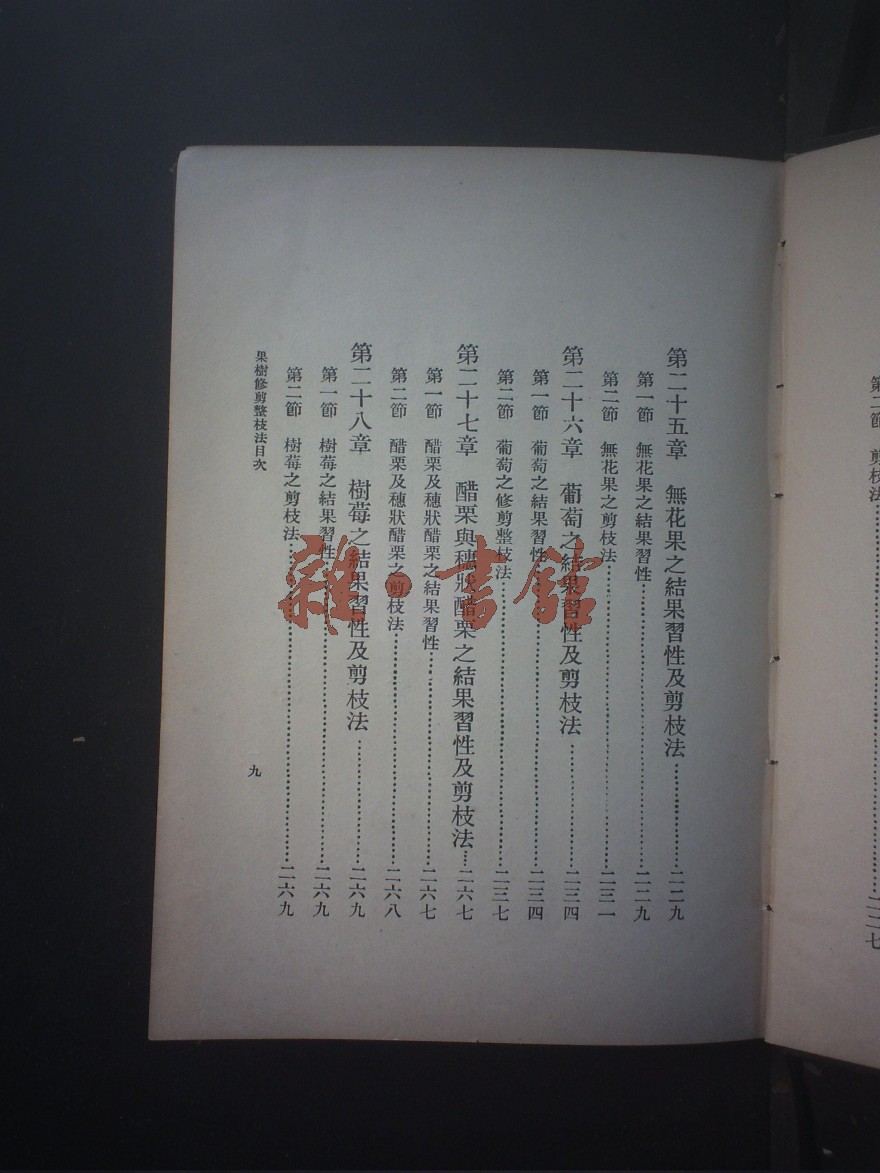 第二節　剪枝法……二二七
第二十五章　無花果之結果習性及剪枝法……二二九
第一節　無花果之結果習性……二二九
第二節　無花果之剪枝法……二三一
第二十六章　葡萄之結果習性及剪枝法……二三四
第一節　葡萄之結果習性……二三四
第二節　葡萄之修剪整枝法……二三七
第二十七章　醋栗與穗狀醋栗之結果習性及剪枝法……二六七
第一節　醋栗及穗狀醋栗之結果習性……二六七
第二節　醋栗及穗狀醋栗之剪枝法……二六八
第二十八章　樹莓之結果習性及剪枝法……二六九
第一節　樹莓之結果習性……二六九
第二節　樹莓之剪枝法……二六九
果樹修剪整枝法目次　九
雜·書館